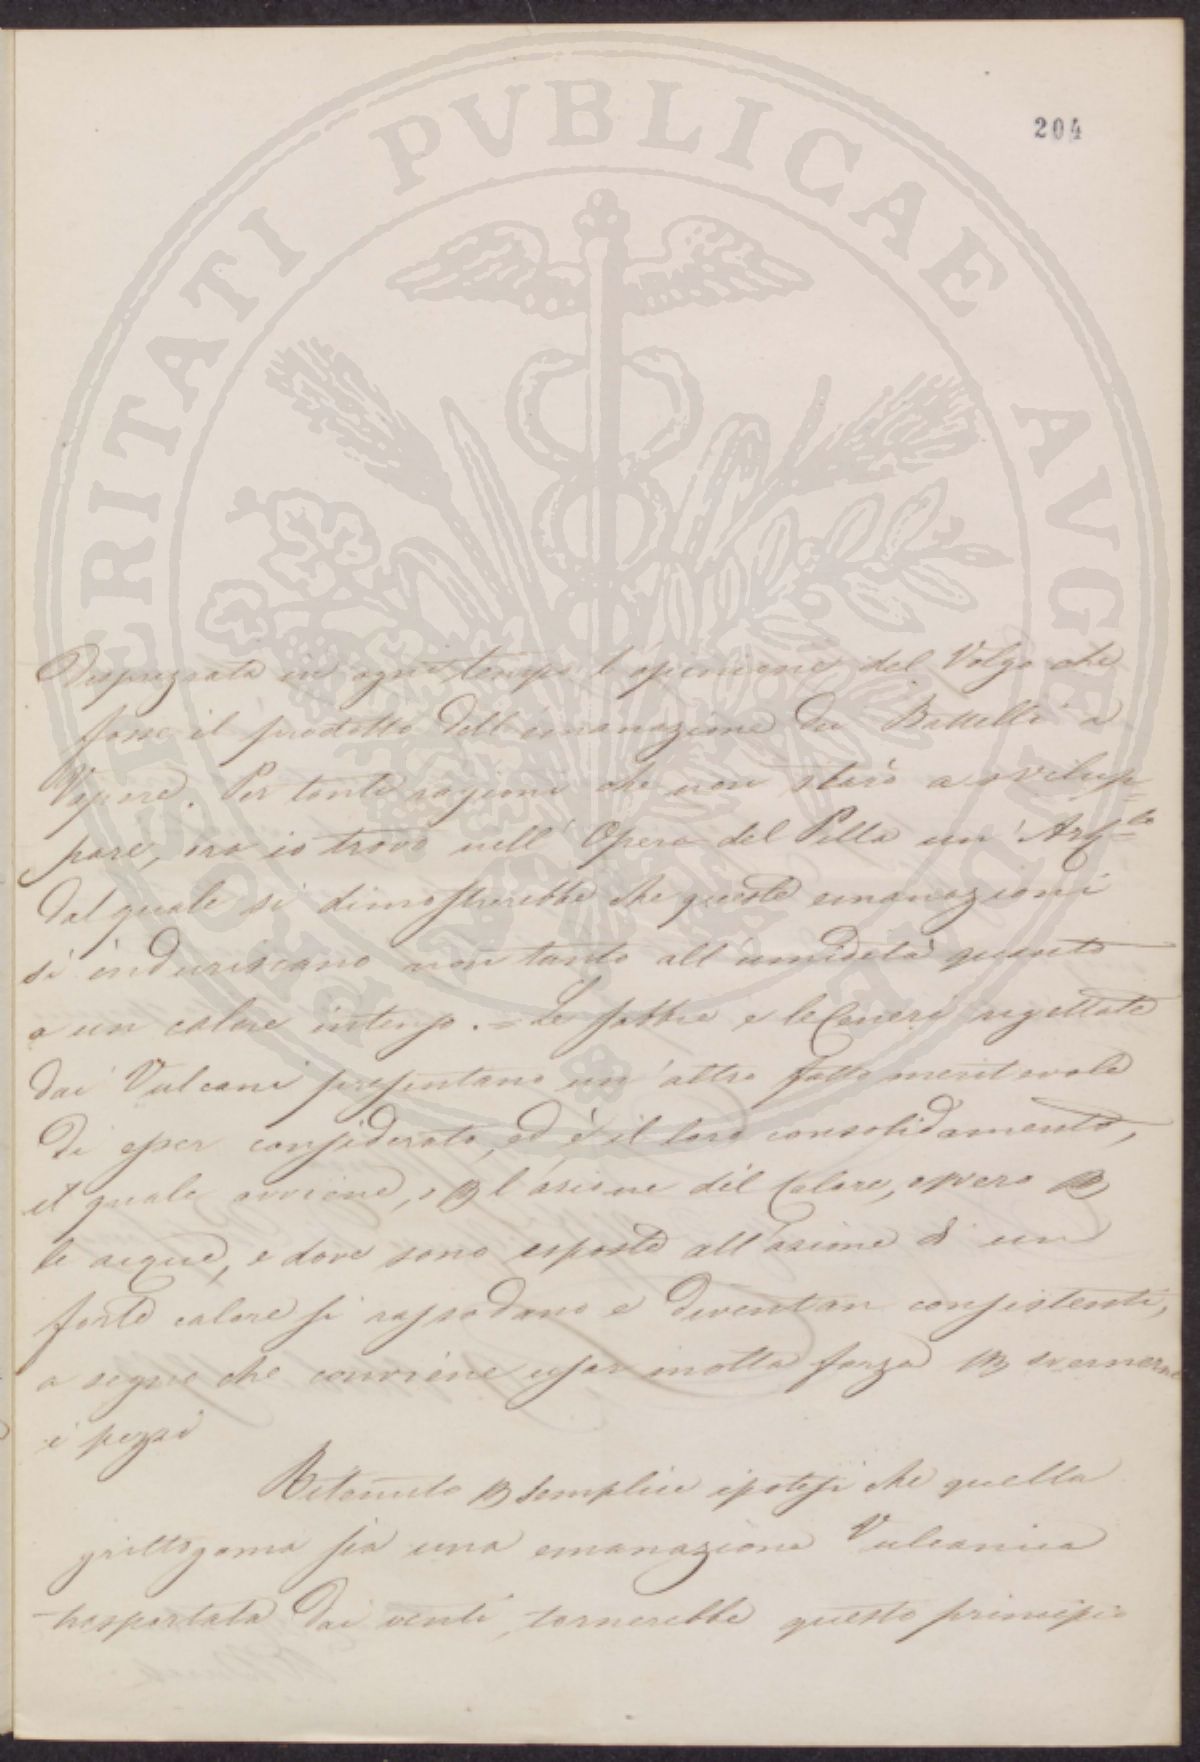 204
PROSPERITATI PVBLICAE AVGENDAE
Disprezzata in ogni tempo l'opinione del Volgo che
fosse il prodotto dell'emanazione dei Battelli a
Vapore. Per tante ragioni che non starò a svilup=
pare, ora io trovo nell'Opera del Pilla un'Artlo
dal quale si dimostrerebbe che queste emanazioni
si induriscano non tanto all'umidità quanto
a un calore intenso. = Le sabbie e le Ceneri rigettate
dai Vulcani presentano un'altro fatto meritevole
di esser considerato, ed è il loro consolidamento,
il quale avviene, o p l'azione del Calore, ovvero p
le acque, e dove sono esposte all'azione di un
forte calore si rassodano e diventan consistenti,
a segno che conviene usar molta forza p svernerne
i pezzi
Ritenuto p semplice ipotesi che quella
grittogama sia una emanazione Vulcanica
trasportata dai venti, tornerebbe questo principio